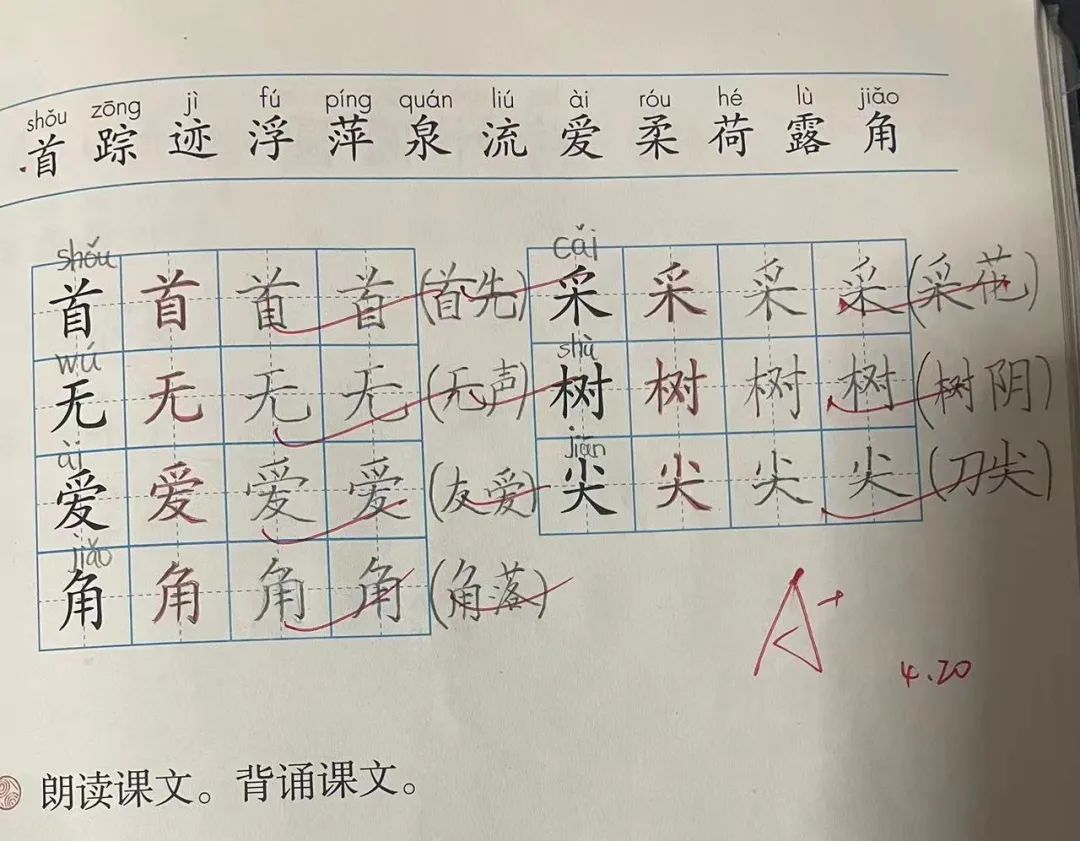 shǒu zōng jì fú píng quán liú ài róu hé lù jiǎo
首 踪 迹 浮 萍 泉 流 爱 柔 荷 露 角
shǒu cǎi
首 首 首 首 (首先) 采 采 采 采 (采花)
wú shù
无 无 无 无 (无声) 树 树 树 树 (树阴)
ài jiān
爱 爱 爱 爱 (友爱) 尖 尖 尖 尖 (刀尖)
jiǎo
角 角 角 角 (角落)
A+
4.20
朗读课文。背诵课文。